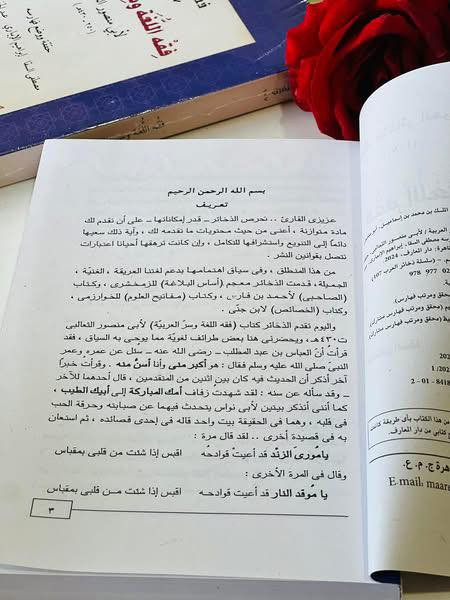 فقه اللغة
لأبي منصور
مصطفى السقا إبراهيم الإبياري
بسم الله الرحمن الرحيم
تعريف
عزيزى القارئ .. تحرص الذخائر ـ قدر إمكاناتها ـ على أن تقدم لك
مادة متوازنة ، أعنى من حيث محتويات ما تقدمه لك ، وآية ذلك سعيها
دائمًا إلى التنويع واستشرافها للتكامل ، وإن كانت ترهقها أحيانا اعتبارات
تتصل بقوانين النشر .
من هذا المنطلق ، وفى سياق اهتمامها بدعم لغتنا العريقة ، الغنيّة ،
الجميلة ، قدمت الذخائر معجم (أساس البلاغة) للزمخشرى ، وكتاب
(الصاحبى) لأحمد بن فارس ، وكتاب (مفاتيح العلوم) للخوارزمى ،
وكتاب (الخصائص) لابن جنّى .
واليوم تقدم الذخائر كتاب (فقه اللغة وسرّ العربيّة) لأبى منصور الثعالبى
ت٤٣٠هـ ، ويحضرنى هنا بعض طرائف لغويّة مما يوحى به السياق . فقد
قرأت أنّ العباس بن عبد المطلب ـ رضى الله عنه ـ سئل عن عمره وعمر
النبىّ صلى الله عليه وسلم فقال : هو أكبر منى وأنا أسنّ منه . وقرأت خبرًا
آخر أذكر أن الحديث فيه كان بين اثنين من المتقدمين ، قال أحدهما للآخر
ـ وقد سأله عن سنه : لقد شهدتُ زفاف أمك المباركة إلى أبيك الطيب ،
كما أننى أتذكر بيتين لأبى نواس يتحدث فيهما عن صبابته وحرقة الحب
فى قلبه ، وهما فى الحقيقة بيت واحد قاله فى إحدى قصائده ، ثم استعان
به فى قصيدة أخرى .. لقد قال مرة :
يا مُورىَ الزنْد قد أعيت قوادحه اقبس إذا شئت من قلبى بمقباس
وقال فى المرة الأخرى :
يا مُوقد النار قد أعيت قوادحـه اقبس إذا شئت مـن قلبى بمقباس
٣
الملك بن محمد بن إسماعيل
العربية : لأبى منصور الثعالبى
دار المعارف، 2024
ذخائر العرب 107
978 977 02
(محقق ومرتب فهارس)
هرة ج. م. ع.
E.mail: maare